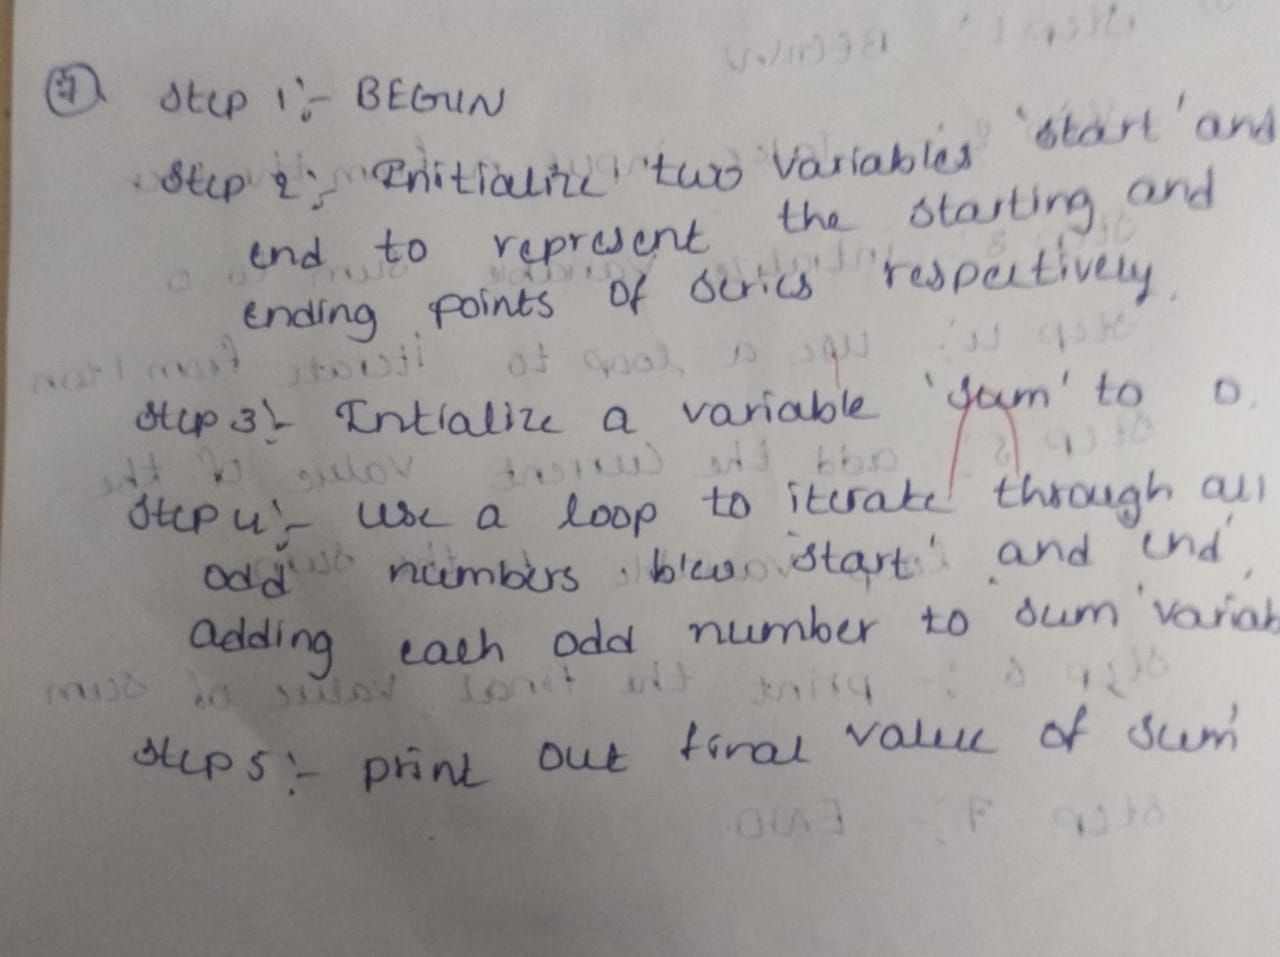 7 Step 1:- BEGUN
Step 2:- Initialize two variables 'start' and
end to represent the starting and
ending points of series respectively.
Step 3:- Intialize a variable 'sum' to 0.
Step 4:- use a loop to iterate through all
odd numbers blew 'start' and 'end'
adding each odd number to sum 'variab
Step 5:- print out final value of sum'